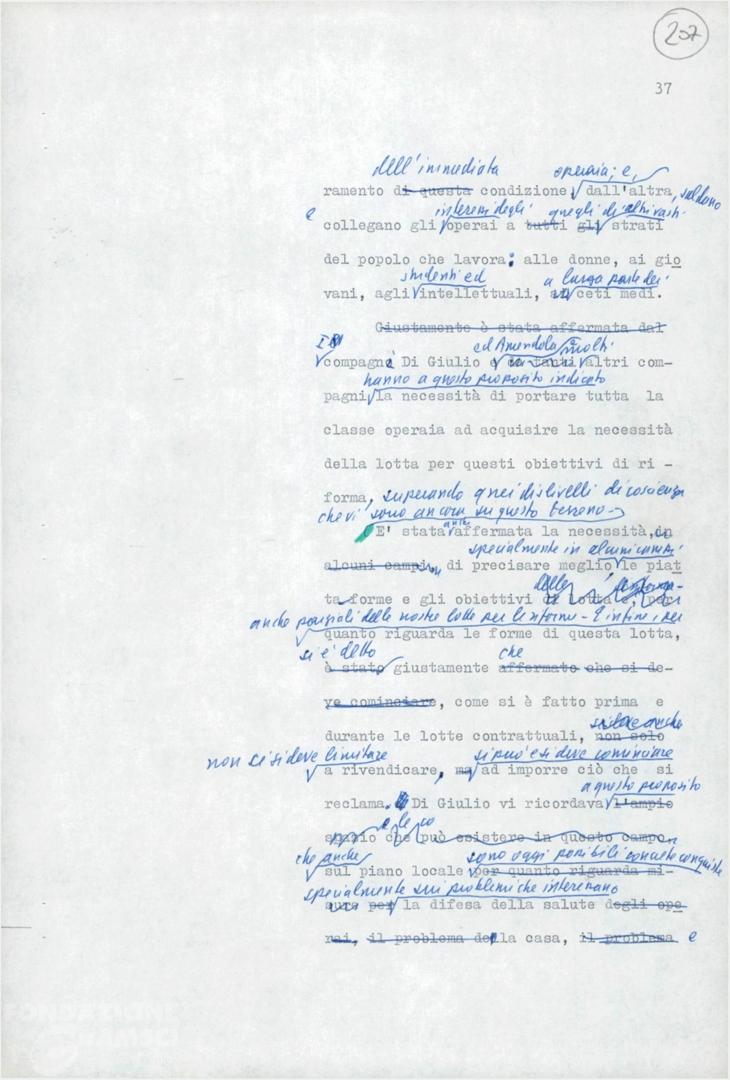 207
37
dell'immediata operaia; e,
ramento di questa condizione, dall'altra, saldano
e interessi degli quegli di altri vasti
collegano gli operai a tutti gli strati
del popolo che lavora: alle donne, ai gio
studenti ed a larga parte dei
vani, agli intellettuali, ai ceti medi.
Giustamente è stata affermata dal
I ed Amendola e molti
compagni Di Giulio e da tanti altri com-
hanno a questo proposito indicato
pagni la necessità di portare tutta la
classe operaia ad acquisire la necessità
della lotta per questi obiettivi di ri -
forma, superando quei dislivelli di coscienza
che vi sono ancora su questo terreno-
E' stata anche affermata la necessità, in
specialmente in alcuni campi
alcuni campi, di precisare meglio le piat
delle
ta forme e gli obiettivi di lotta e, per
anche parziali delle nostre lotte per le riforme- E infine, per
quanto riguarda le forme di questa lotta,
si è detto che
è stato giustamente affermato che si de-
ve cominciare, come si è fatto prima e
durante le lotte contrattuali, non solo
non ci si deve limitare si può e si deve cominciare
a rivendicare, ma ad imporre ciò che si
a questo proposito
reclama. Di Giulio vi ricordava l'ampio
spazio che può esistere in questo campo,
che anche sono oggi possibili concrete conquiste
sul piano locale per quanto riguarda mi-
specialmente sui problemi che interessano
sura per la difesa della salute degli ope
rai, il problema della casa, il problema e
FONDAZIONE
GRAMSCI